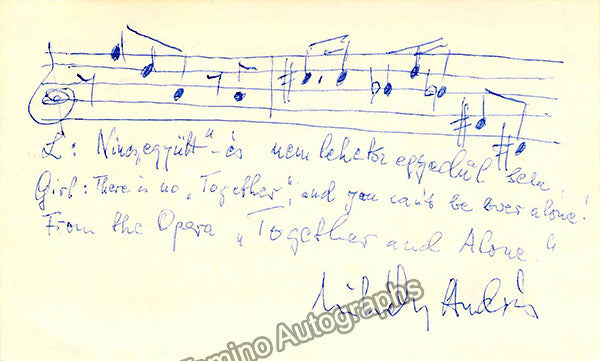 L: Nincs „együtt" – és nem lehetsz egyedül sem.
Girl: There is no „Together", and you can't be ever alone!
From the Opera „Together and Alone"
Mihály András
Tamino Autographs